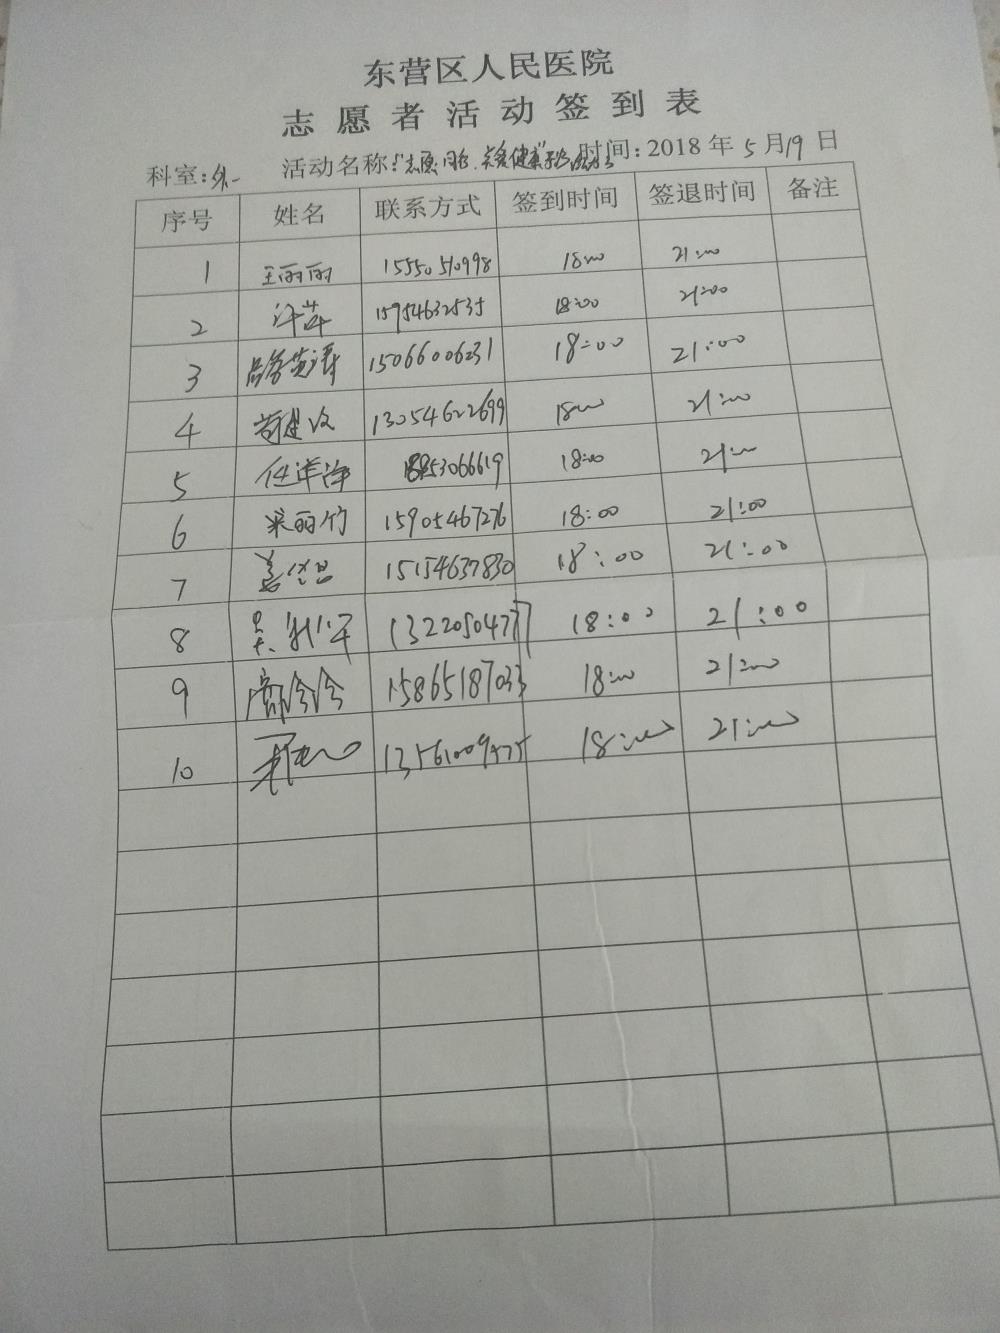 东营区人民医院
志愿者活动签到表
科室:外一 活动名称:"志愿同行 关爱健康" 时间:2018年5月19日
序号 姓名 联系方式 签到时间 签退时间 备注
1 王丽丽 15550510998 18:00 21:00
2 许萍 15954632535 18:00 21:00
3 15066006231 18:00 21:00
4 苟建设 13054622699 18:00 21:00
5 任洋洋 18853066619 18:00 21:00
6 丽竹 15905467276 18:00 21:00
7 15154637830 18:00 21:00
8 18:00 21:00
9 15865187033 18:00 21:00
10 18:00 21:00